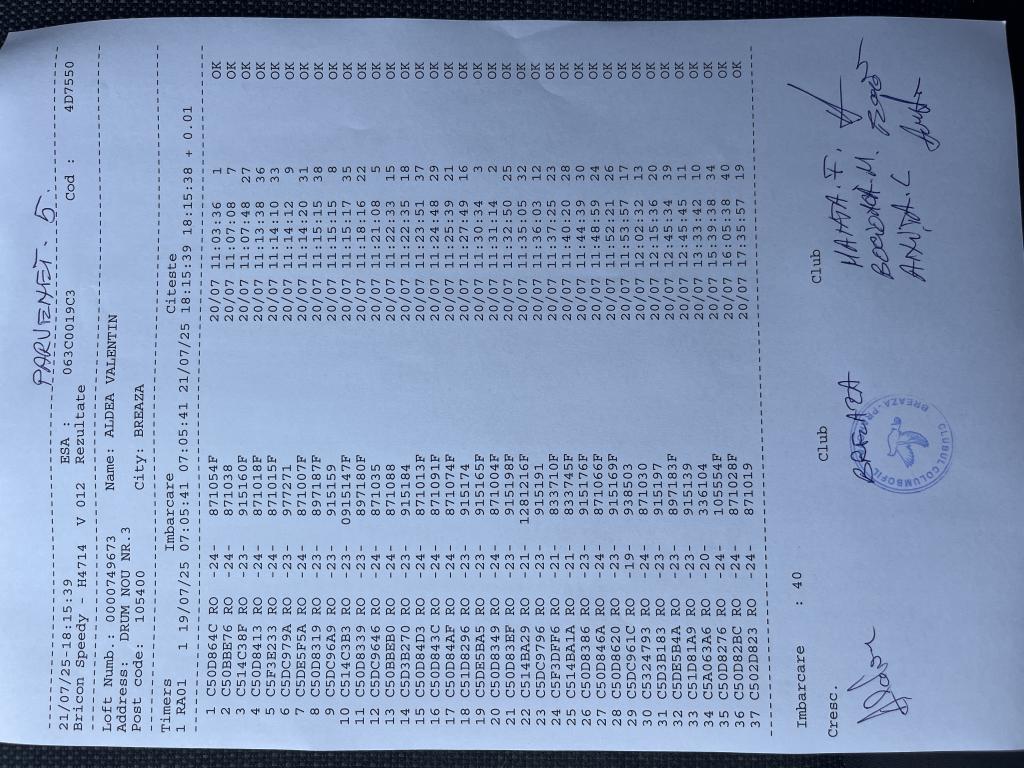 PARVENET. 5.
21/07/25-18:15:39 ESA : 063C0019C3 Cod : 4D7550
Bricon Speedy - H4714 V 012 Rezultate
Loft Numb.: 0000749673 Name: ALDEA VALENTIN
Address: DRUM NOU NR.3
Post code: 105400 City: BREAZA
Timers Imbarcare Citeste
1 RA01 1 19/07/25 07:05:41 07:05:41 21/07/25 18:15:39 18:15:38 + 0.01
1 C50D864C RO -24- 871054F 20/07 11:03:36 1 OK
2 C50BBE76 RO -24- 871038 20/07 11:07:08 7 OK
3 C514C38F RO -23- 915160F 20/07 11:07:48 27 OK
4 C50D8413 RO -24- 871018F 20/07 11:13:38 36 OK
5 C5F3E233 RO -24- 871015F 20/07 11:14:10 33 OK
6 C5DC979A RO -23- 977271 20/07 11:14:12 9 OK
7 C5DE5F5A RO -24- 871007F 20/07 11:14:20 31 OK
8 C50D8319 RO -23- 897187F 20/07 11:15:15 38 OK
9 C5DC96A9 RO -23- 915159 20/07 11:15:15 8 OK
10 C514C3B3 RO -23- 0915147F 20/07 11:15:17 35 OK
11 C50D8339 RO -23- 897180F 20/07 11:18:16 22 OK
12 C5DC9646 RO -24- 871035 20/07 11:21:08 5 OK
13 C50BBEB0 RO -24- 871088 20/07 11:22:33 15 OK
14 C5D3B270 RO -23- 915184 20/07 11:22:35 18 OK
15 C50D84D3 RO -24- 871013F 20/07 11:23:51 37 OK
16 C50D843C RO -24- 871091F 20/07 11:24:48 29 OK
17 C50D84AF RO -24- 871074F 20/07 11:25:39 21 OK
18 C51D8296 RO -23- 915174 20/07 11:27:49 16 OK
19 C5DE5BA5 RO -23- 915165F 20/07 11:30:34 3 OK
20 C50D8349 RO -24- 871004F 20/07 11:31:14 2 OK
21 C50D83EF RO -23- 915198F 20/07 11:32:50 25 OK
22 C514BA29 RO -21- 1281216F 20/07 11:35:05 32 OK
23 C5DC9796 RO -23- 915191 20/07 11:36:03 12 OK
24 C5F3DFF6 RO -21- 833710F 20/07 11:37:25 23 OK
25 C514BA1A RO -21- 833745F 20/07 11:40:20 28 OK
26 C50D8386 RO -23- 915176F 20/07 11:44:39 30 OK
27 C50D846A RO -24- 871066F 20/07 11:48:59 24 OK
28 C50D8620 RO -23- 915169F 20/07 11:52:21 26 OK
29 C5DC961C RO -19- 938503 20/07 11:53:57 17 OK
30 C5324793 RO -24- 871030 20/07 12:02:32 13 OK
31 C5D3B183 RO -23- 915197 20/07 12:15:36 20 OK
32 C5DE5B4A RO -23- 897183F 20/07 12:45:34 39 OK
33 C51D81A9 RO -23- 915139 20/07 12:45:45 11 OK
34 C5A063A6 RO -20- 336104 20/07 13:33:42 10 OK
35 C50D8276 RO -24- 105554F 20/07 15:39:38 34 OK
36 C50D82BC RO -24- 871028F 20/07 16:05:38 40 OK
37 C502D823 RO -24- 871019 20/07 17:35:57 19 OK
Imbarcare : 40
Cresc. Club Club
BREAZA
CLUBUL COLUMBOFIL